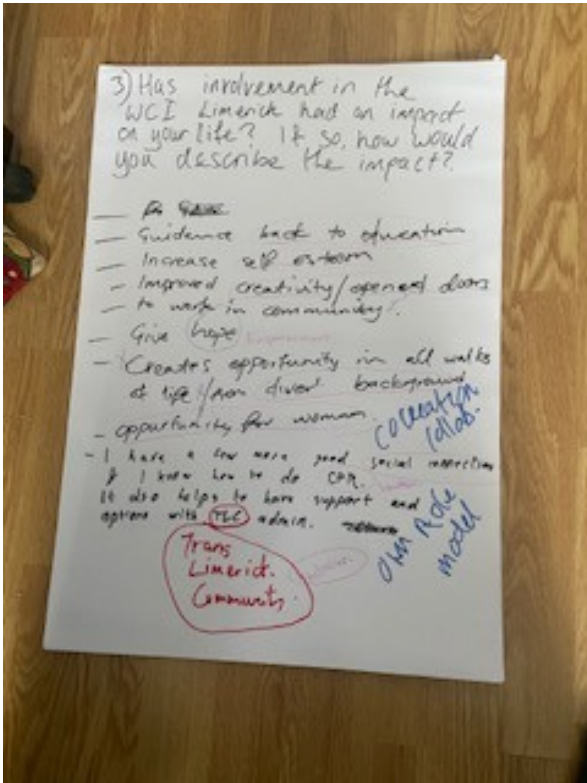 3) Has involvement in the
WCI Limerick had an impact
on your life? If so, how would
you describe the impact?
— Guidance back to education
— Increase self esteem
— Improved creativity/opened doors
— to work in community.
— Give hope
— Creates opportunity in all walks
of life / from diver background
- opportunity for woman.
cocreation
collab.
- I have a few more good social connections
& I know how to do CPR.
It also helps to have support and
options with TLC admin.
own Role
model
Trans
Limerick
Community